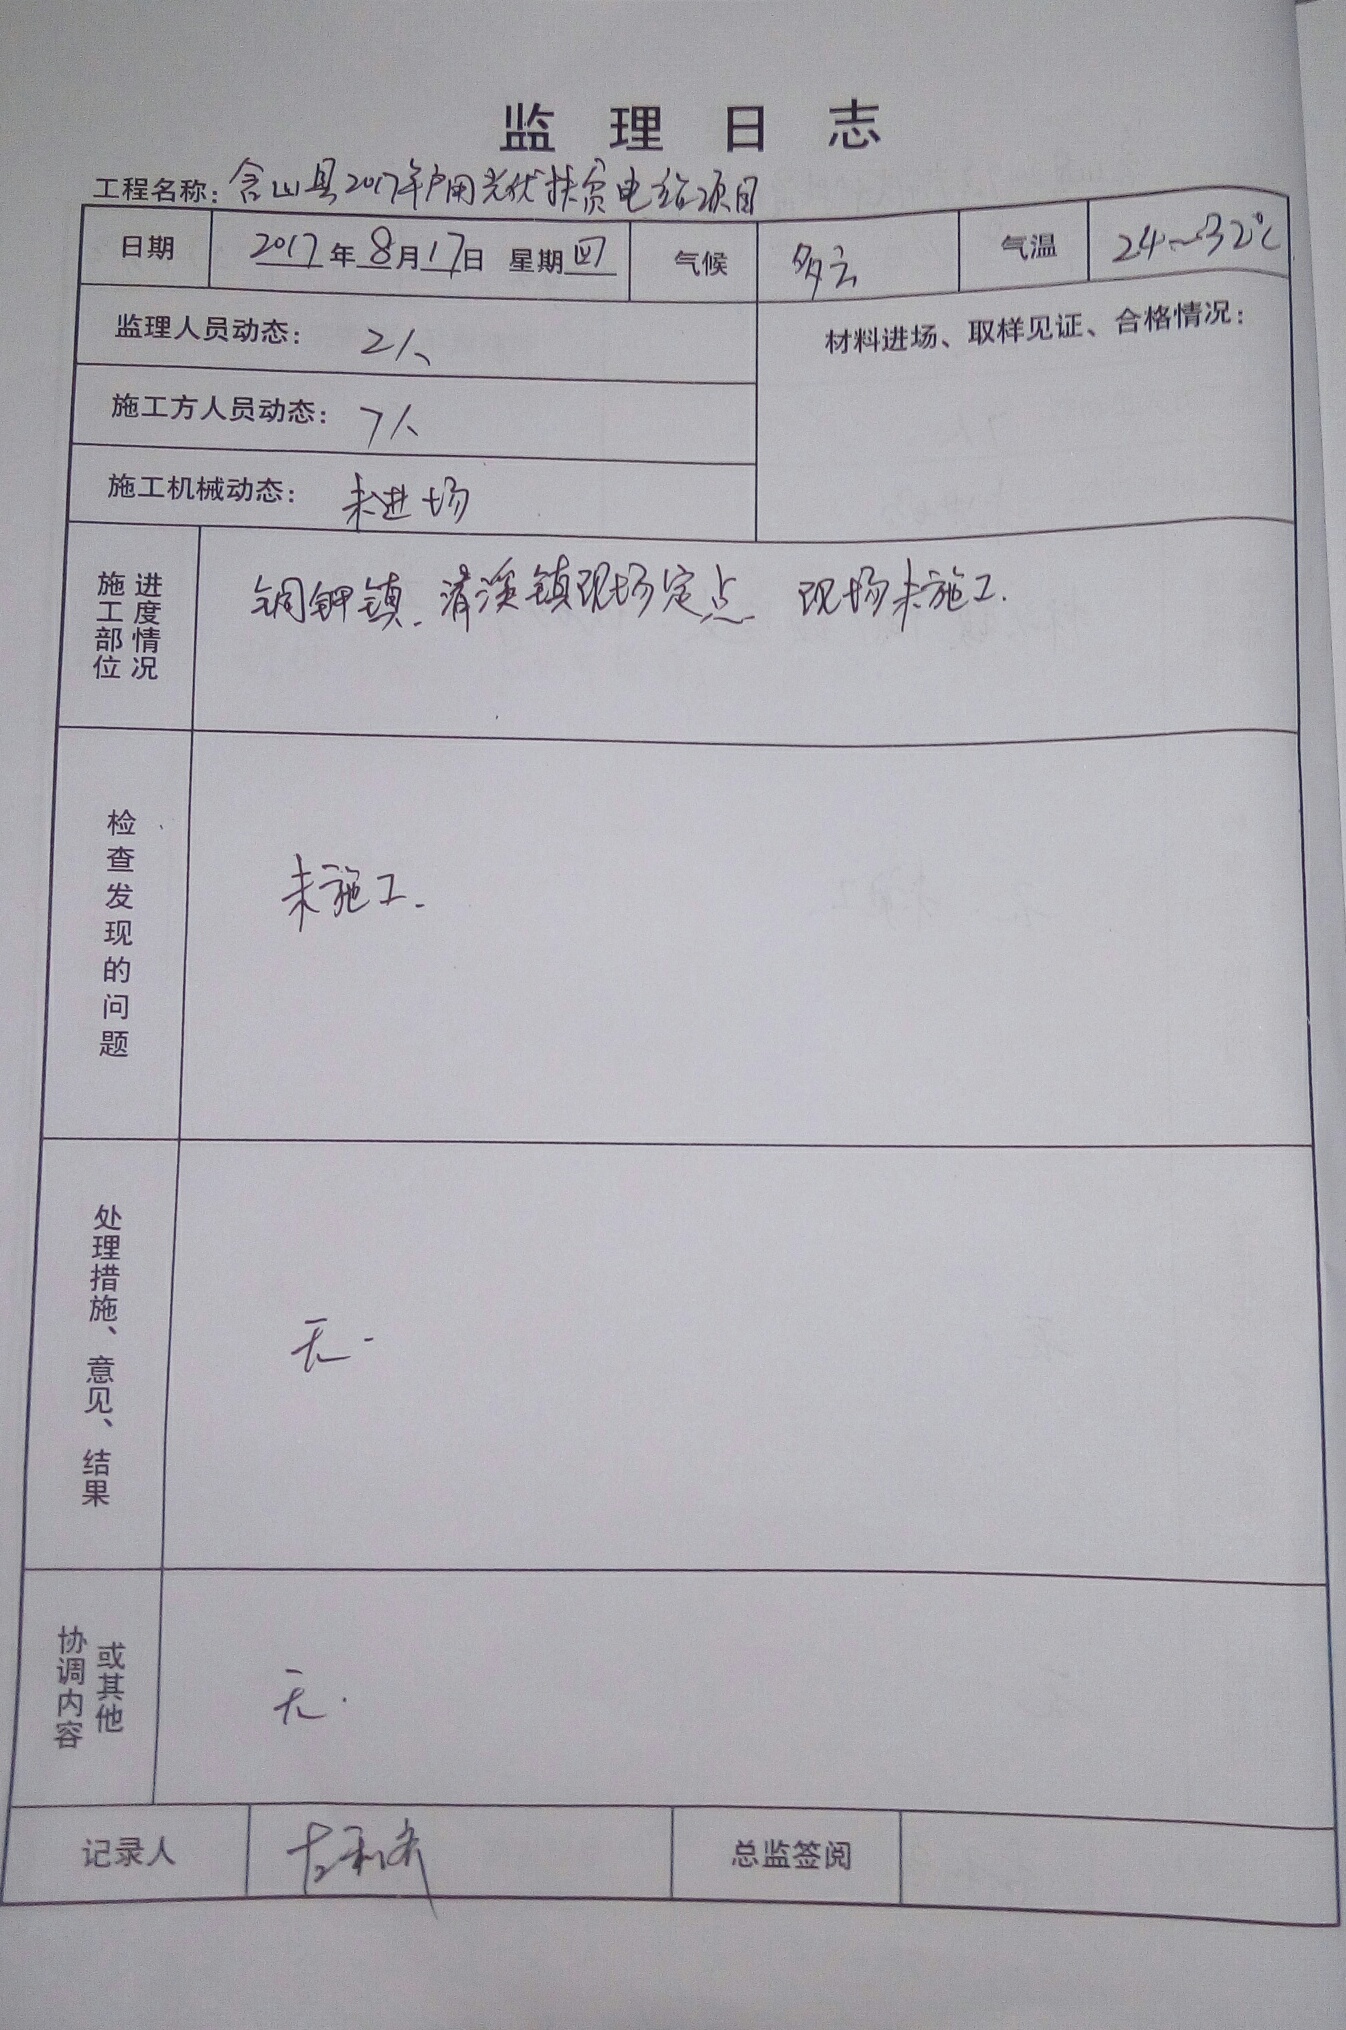 监理日志
工程名称：含山县2017年户用光伏扶贫电站项目
日期 2017年8月17日 星期四 气候 多云 气温 24~32℃
监理人员动态： 2人
材料进场、取样见证、合格情况：
施工方人员动态： 7人
施工机械动态： 未进场
施工部位进度情况
铜闸镇、清溪镇现场定点 现场未施工.
检查发现的问题
未施工.
处理措施、意见、结果
无.
协调内容或其他
无.
记录人
总监签阅